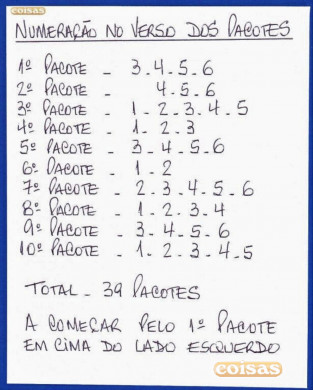 coisas
NUMERAÇÃO NO VERSO DOS PACOTES
1º PACOTE - 3.4.5.6
2º PACOTE 4.5.6
3º PACOTE - 1.2.3.4.5
4º PACOTE - 1.2.3
5º PACOTE - 3.4.5.6
6º PACOTE - 1.2
7º PACOTE - 2.3.4.5.6
8º PACOTE - 1.2.3.4
9º PACOTE - 3.4.5.6
10º PACOTE - 1.2.3.4.5
TOTAL - 39 PACOTES
A COMEÇAR PELO 1º PACOTE
EM CIMA DO LADO ESQUERDO
coisas